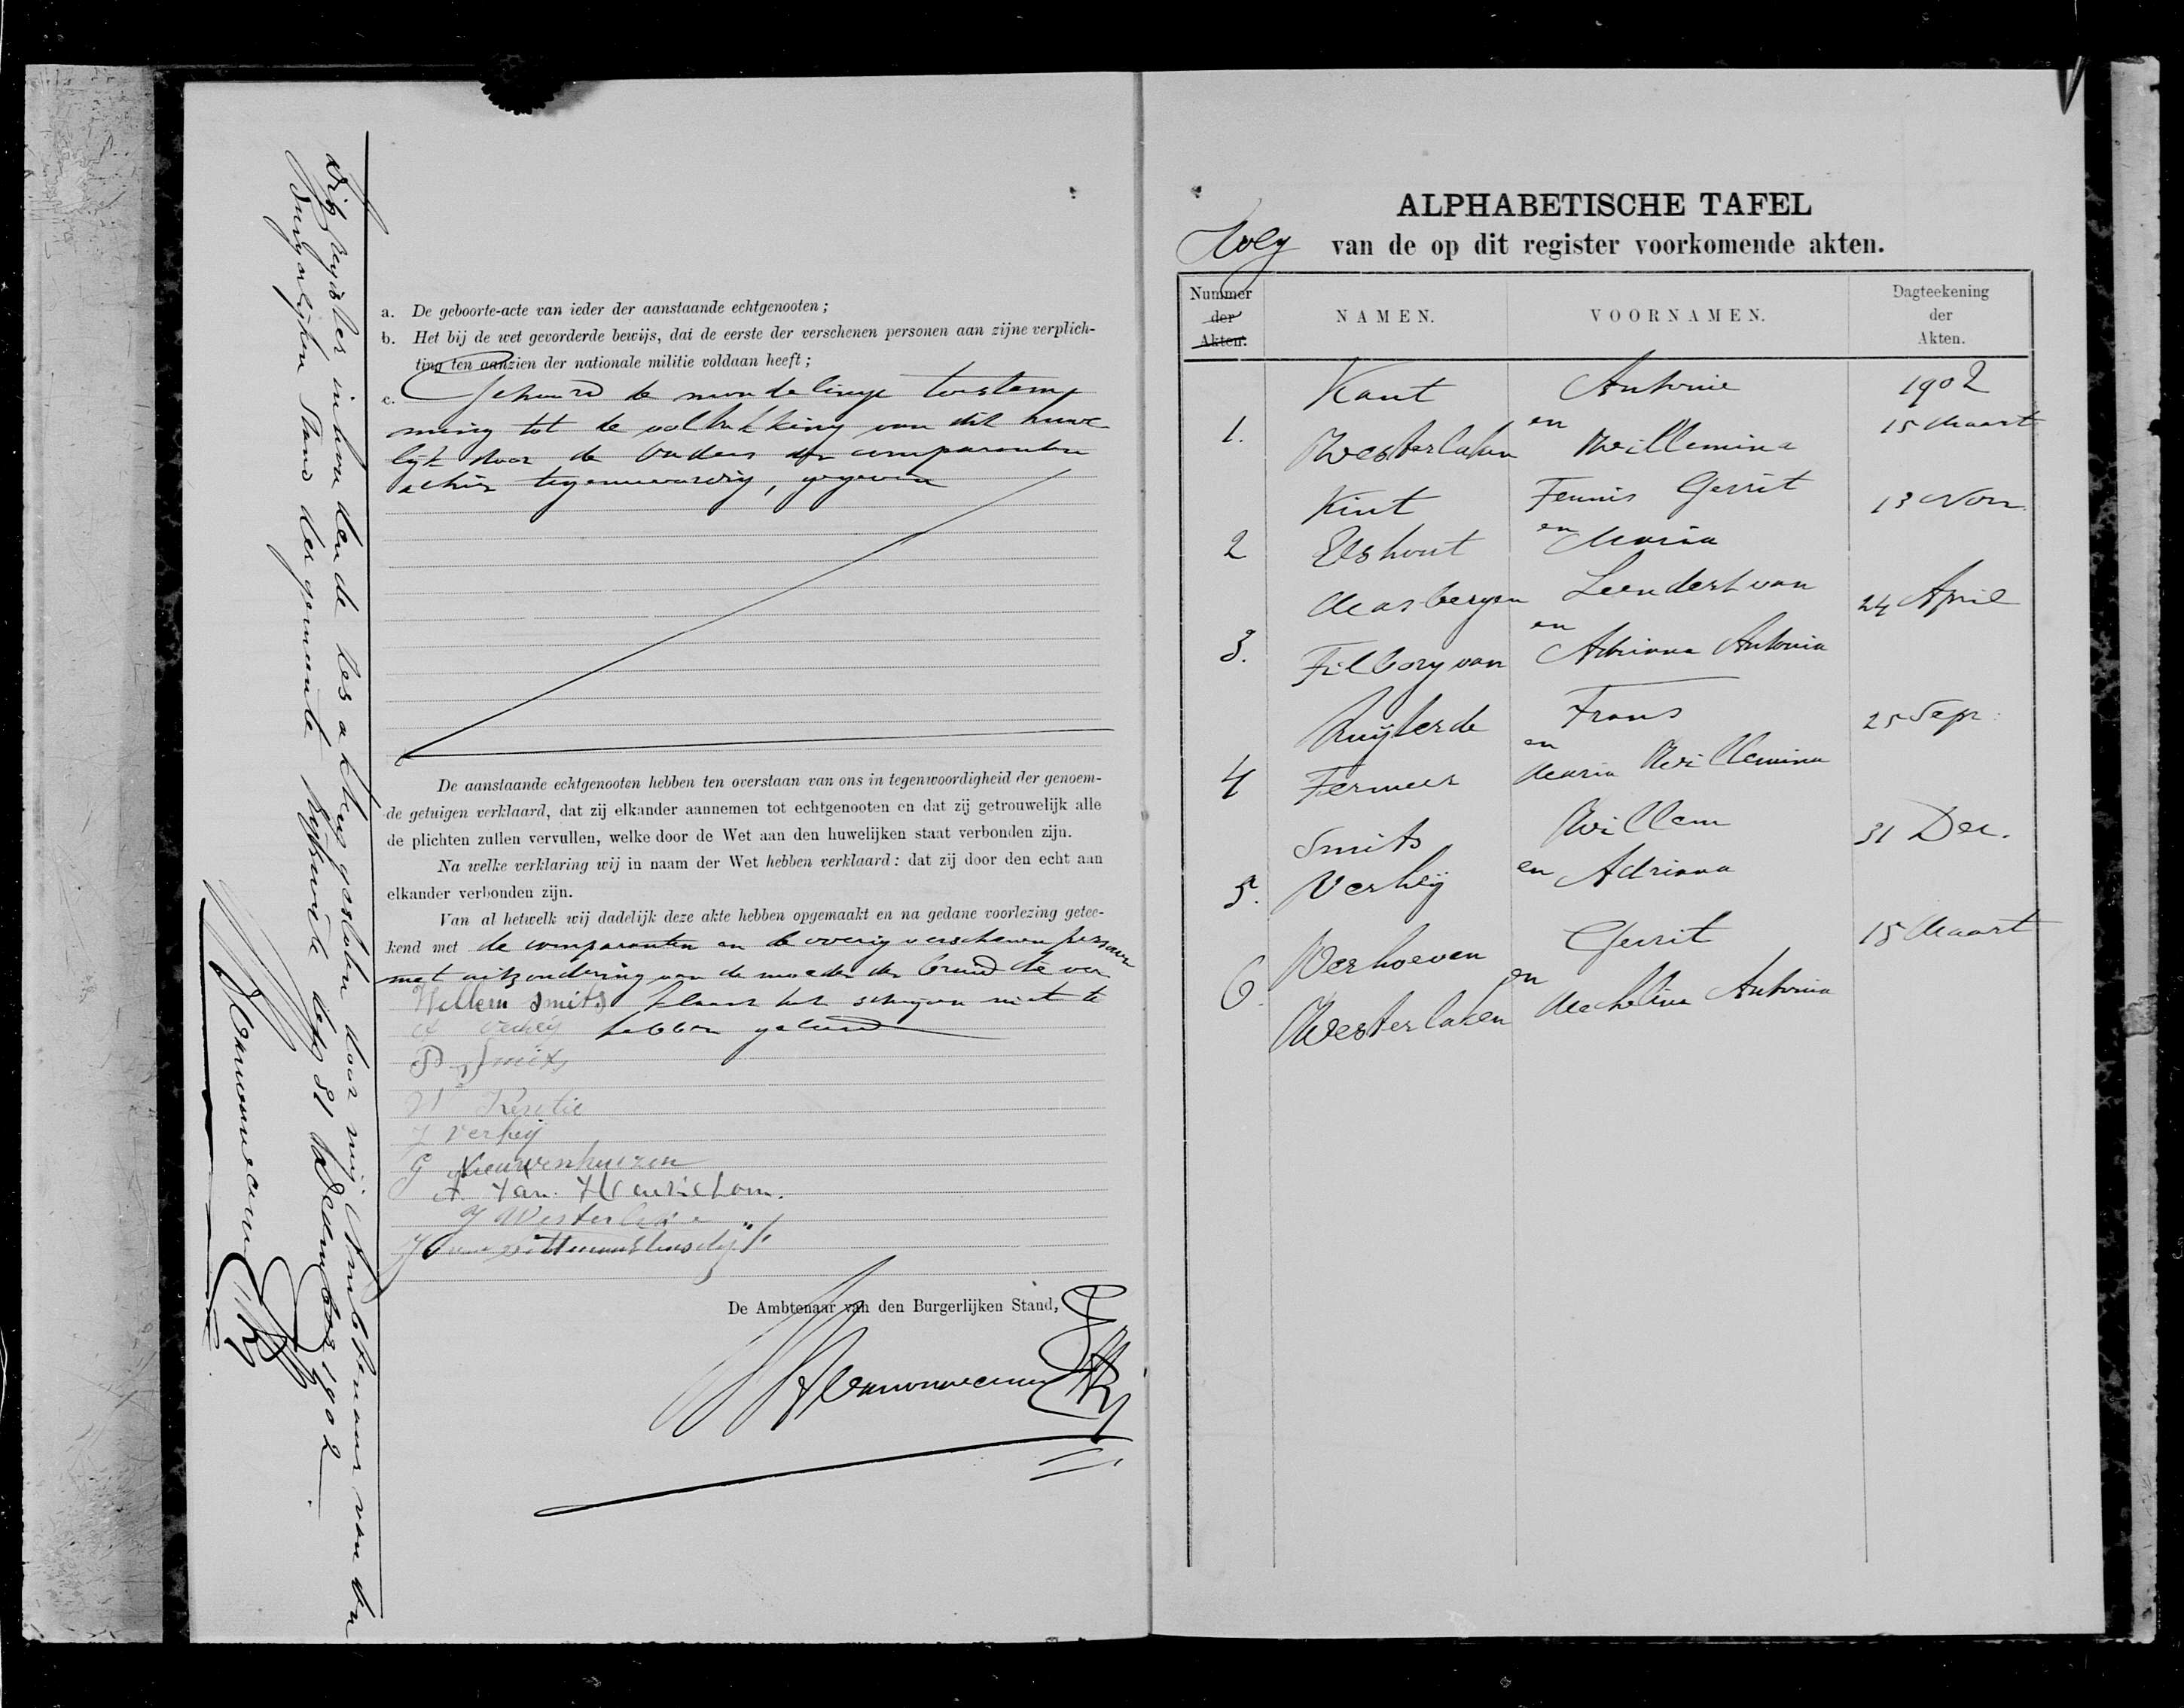 a. De geboorte-acte van ieder der aanstaande echtgenooten;
b. Het bij de wet gevorderde bewijs, dat de eerste der verschenen personen aan zijne verplich-
ting ten aanzien der nationale militie voldaan heeft;
c. Gehoord de mondelinge toestem
ming tot de voltrekking van dit huwe
lijk door de Ouders der comparanten
alhier tegenwoordig, gegeven
De aanstaande echtgenooten hebben ten overstaan van ons in tegenwoordigheid der genoem-
de getuigen verklaard, dat zij elkander aannemen tot echtgenooten en dat zij getrouwelijk alle
de plichten zullen vervullen, welke door de Wet aan den huwelijken staat verbonden zijn.
Na welke verklaring wij in naam der Wet hebben verklaard: dat zij door den echt aan
elkander verbonden zijn.
Van al hetwelk wij dadelijk deze akte hebben opgemaakt en na gedane voorlezing getee-
kend met de comparanten en de overig verschenen personen
met uitzondering van de moeder der bruid die ver
Willem Smits klaart het schrijven niet te
A Verheij hebben geleerd
P Smits
J Verheij
G Nieuwenhuizen
A. van
J Westerlaken
De Ambtenaar van den Burgerlijken Stand,
Dit register inhoudende zes akten gesloten door mij Ambtenaar van den
Burgerlijken Stand der gemeente Rijswijk den 31 December 1902.
ALPHABETISCHE TAFEL
van de op dit register voorkomende akten.
Nummer der Akten. NAMEN. VOORNAMEN. Dagteekening der Akten.
Kant Antonie 1902
1. en 15 Maart
Westerlaken Willemina
Kint Teunis Gerrit 13 Nov
2 Elshout en Maria
Maasbergen Leendert van 24 April
3. en
Tilborg van Adriana Antonia
Ruijter de Frans 25 Sept.
4 en
Termeer Maria Willemina
Smits Willem 31 Dec.
5. Verheij en Adriana
Verhoeven Gerrit 15 Maart
6. en
Westerlaken Mechelina Antonia